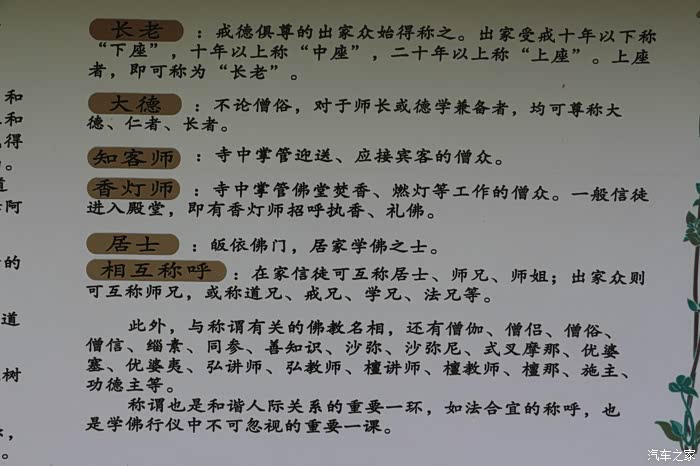 长老：戒德俱尊的出家众始得称之。出家受戒十年以下称
“下座”，十年以上称“中座”，二十年以上称“上座”。上座
者，即可称为“长老”。
大德：不论僧俗，对于师长或德学兼备者，均可尊称大
德、仁者、长者。
知客师：寺中掌管迎送、应接宾客的僧众。
香灯师：寺中掌管佛堂焚香、燃灯等工作的僧众。一般信徒
进入殿堂，即有香灯师招呼执香、礼佛。
居士：皈依佛门，居家学佛之士。
相互称呼：在家信徒可互称居士、师兄、师姐；出家众则
可互称师兄，或称道兄、戒兄、学兄、法兄等。
此外，与称谓有关的佛教名相，还有僧伽、僧侣、僧俗、
僧信、缁素、同参、善知识、沙弥、沙弥尼、式叉摩那、优婆
塞、优婆夷、弘讲师、弘教师、檀讲师、檀教师、檀那、施主、
功德主等。
称谓也是和谐人际关系的重要一环，如法合宜的称呼，也
是学佛行仪中不可忽视的重要一课。
和
和
得
道
阿
的
道
树
汽车之家